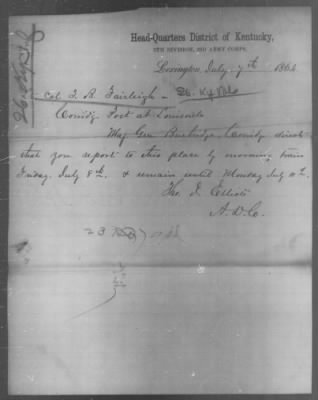 26 Ky Inf
Head-Quarters District of Kentucky,
5TH DIVISION, 23D ARMY CORPS,
Lexington, July 7th 1864
Col T. B. Fairleigh - 26. Ky Vols
Comdg Post at Louisville
Maj Gen Burbridge, Comdg directs
that you report to this place by morning train
Friday, July 8th, & remain until Monday July 11th.
Tho. J. Elliott
A.D.C.
23